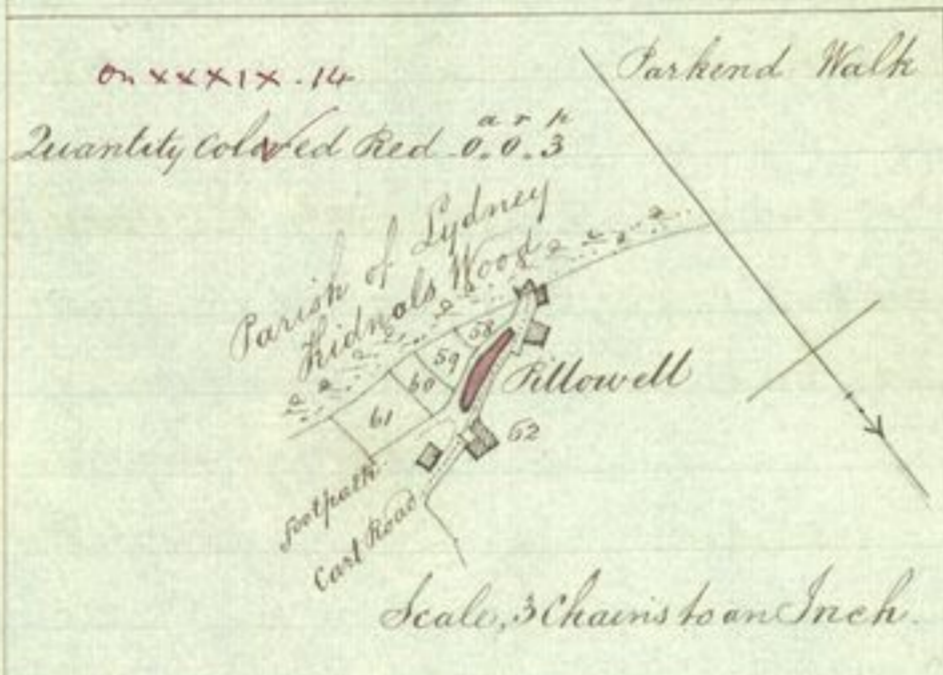 Parkend Walk
On XXXIX.14
a r p
Quantity colored Red 0.0.3
Parish of Lydney
Kidnals Wood
58
59
60
61
Pillowell
62
Footpath
Cart Road
Scale, 3 Chains to an Inch.